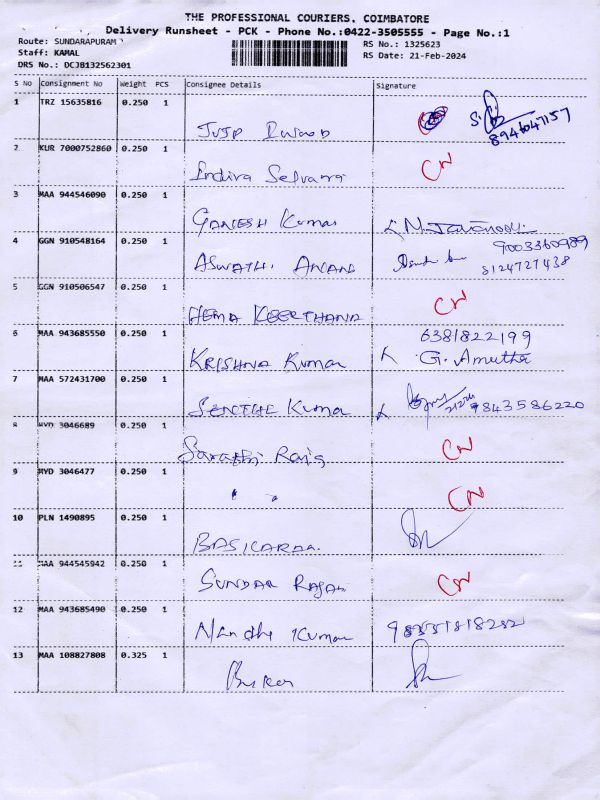 THE PROFESSIONAL COURIERS, COIMBATORE
Delivery Runsheet - PCK - Phone No.:0422-3505555 - Page No.:1
Route: SUNDARAPURAM
RS No.: 1325623
Staff: KAMAL
RS Date: 21-Feb-2024
DRS No.: DCJB132562301
S No Consignment No Weight PCS Consignee Details Signature
1 TRZ 15635816 0.250 1
8946047157
2 KUR 7000752860 0.250 1 Indira Selvam CN
3 MAA 944546090 0.250 1 GANESH Kumar
4 GGN 910548164 0.250 1 ASWATHI ANAND 9003360989
8124727438
5 GGN 910506547 0.250 1 HEMA KEERTHANA CN
6 MAA 943685550 0.250 1 KRISHNA Kumar 6381822199
G. Amutha
7 MAA 572431700 0.250 1 SENTHIL Kumar 9843586220
8 HYD 3046689 0.250 1 CN
9 HYD 3046477 0.250 1 " " CN
10 PLN 1490895 0.250 1 BASKARAN
11 MAA 944545942 0.250 1 SUNDAR RAJAN CN
12 MAA 943685490 0.250 1 Nandha Kumar
13 MAA 108827808 0.325 1